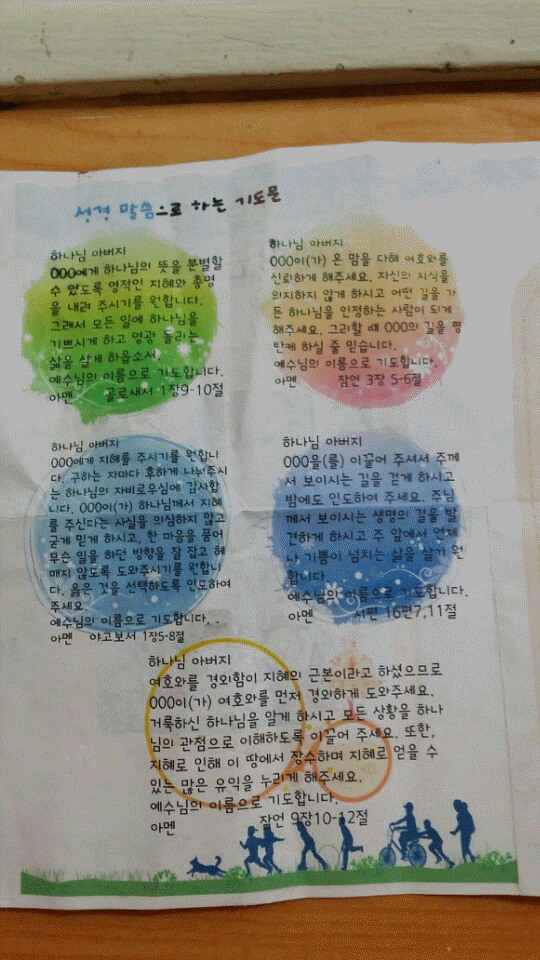 성경 말씀으로 하는 기도문
하나님 아버지
OOO에게 하나님의 뜻을 분별할
수 있도록 영적인 지혜와 총명
을 내려 주시기를 원합니다.
그래서 모든 일에 하나님을
기쁘시게 하고 영광 돌리는
삶을 살게 하옵소서.
예수님의 이름으로 기도합니다.
아멘 골로새서 1장9-10절
하나님 아버지
OOO이(가) 온 맘을 다해 여호와를
신뢰하게 해주세요. 자신의 지식을
의지하지 않게 하시고 어떤 길을 가
든 하나님을 인정하는 사람이 되게
해주세요. 그리할 때 OOO의 길을 평
탄케 하실 줄 믿습니다.
예수님의 이름으로 기도합니다.
아멘 잠언 3장 5-6절
하나님 아버지
OOO에게 지혜를 주시기를 원합니
다. 구하는 자마다 후하게 나눠주시
는 하나님의 자비로우심에 감사합
니다. OOO이(가) 하나님께서 지혜
를 주신다는 사실을 의심하지 않고
굳게 믿게 하시고, 한 마음을 품어
무슨 일을 하던 방향을 잘 잡고 헤
매지 않도록 도와주시기를 원합니
다. 옳은 것을 선택하도록 인도하여
주세요.
예수님의 이름으로 기도합니다.
아멘 야고보서 1장5-8절
하나님 아버지
OOO을(를) 이끌어 주셔서 주께
서 보이시는 길을 걷게 하시고
밤에도 인도하여 주세요. 주님
께서 보이시는 생명의 길을 발
견하게 하시고 주 앞에서 언제
나 기쁨이 넘치는 삶을 살기 원
합니다.
예수님의 이름으로 기도합니다.
아멘 시편 16편7,11절
하나님 아버지
여호와를 경외함이 지혜의 근본이라고 하셨으므로
OOO이(가) 여호와를 먼저 경외하게 도와주세요.
거룩하신 하나님을 알게 하시고 모든 상황을 하나
님의 관점으로 이해하도록 이끌어 주세요. 또한,
지혜로 인해 이 땅에서 장수하며 지혜로 얻을 수
있는 많은 유익을 누리게 해주세요.
예수님의 이름으로 기도합니다.
아멘 잠언 9장10-12절